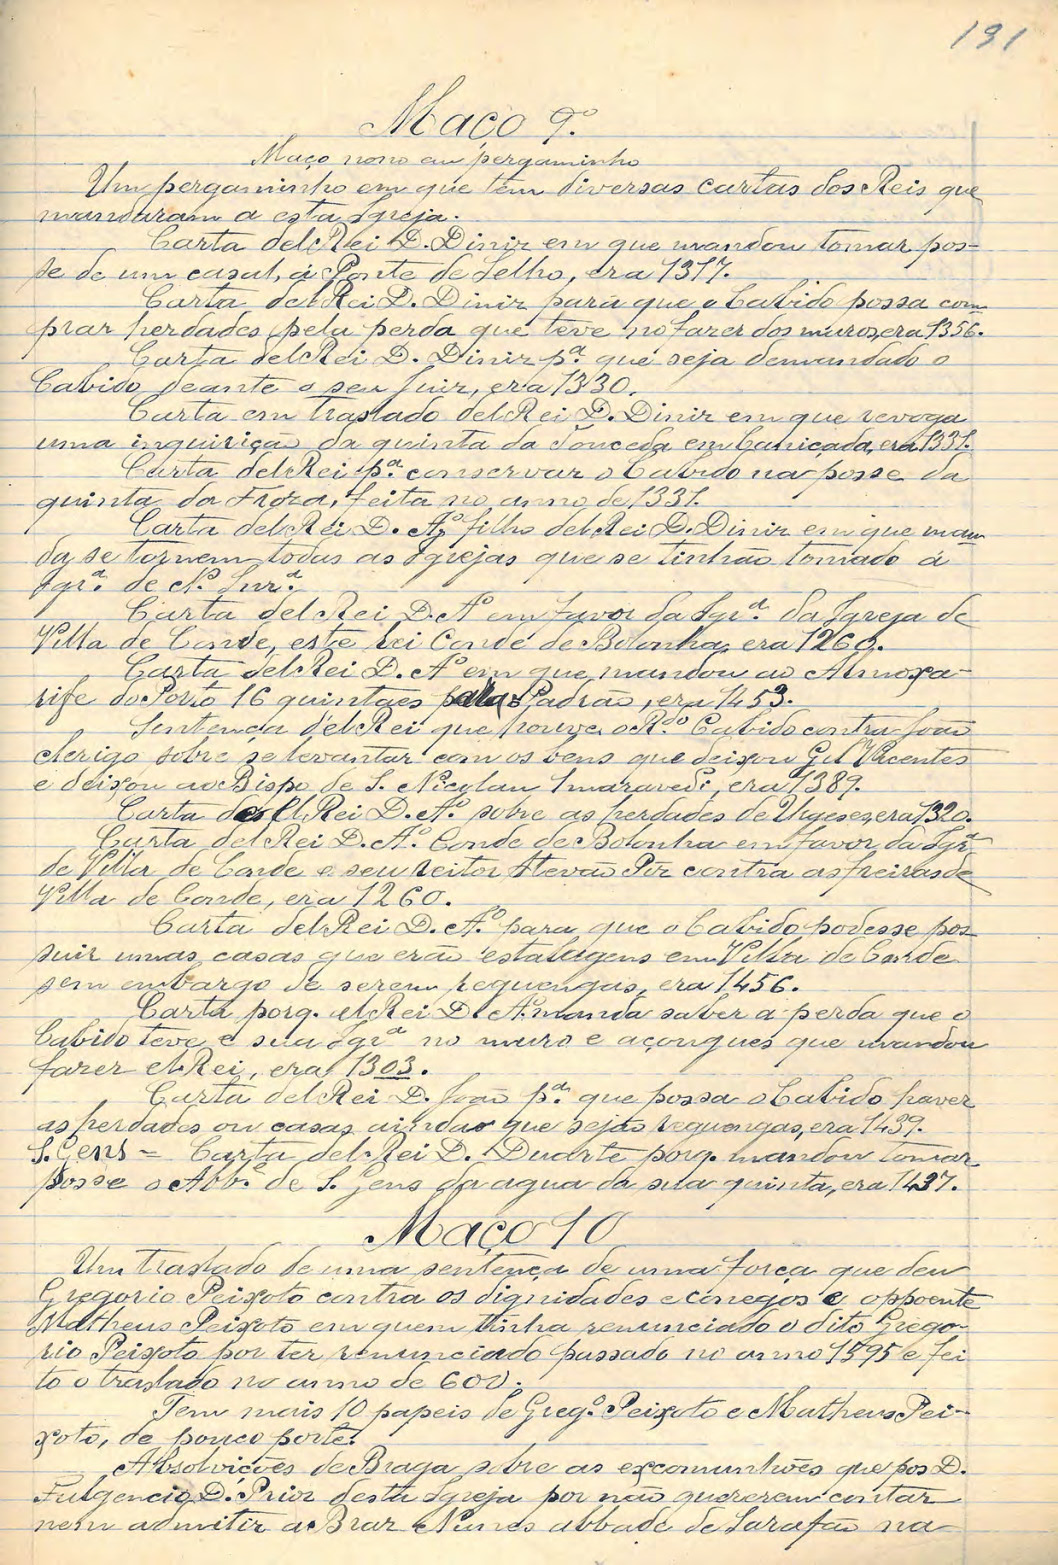 191
Maço 9.º
Maço nono em pergaminho
Um pergaminho em que tem diversas cartas dos Reis que
mandaram a esta Igreja.
Carta del Rei D. Diniz em que mandou tomar pos-
se de um casal, á Ponte de Selho, era 1317.
Carta del Rei D. Diniz para que o Cabido possa com-
prar herdades pela perda que teve no fazer dos muros, era 1356.
Carta del Rei D. Diniz p.ª que seja demandado o
Cabido deante o seu Juiz, era 1330.
Carta em traslado del Rei D. Diniz em que revoga
uma inquirição da quinta da Touceda em Caniçada, era 1331.
Carta del Rei p.ª conservar o Cabido na posse da
quinta da Froza, feita no anno de 1331.
Carta del Rei D. Aº filho del Rei D. Diniz em que man-
da se tornem todas as Igrejas que se tinhão tomado á
Igr.ª de N.ª Snr.ª
Carta del Rei D. Aº em favor da Igr.ª da Igreja de
Villa de Conde, este rei Conde de Bolonha, era 1260.
Carta del Rei D. Aº em que mandou ao Almoxa-
rife do Porto 16 quintaes Padrão, era 1453.
Sentença del Rei que houve o R.do Cabido contra João
clerigo sobre se levantar com os bens que deixou Gil Vicentes
e deixou ao Bispo de S. Nicolau 1 maravedi, era 1389.
Carta del Rei D. Aº. sobre as herdades de Ugeses, era 1320.
Carta del Rei D. Aº. Conde de Bolonha em favor da Igr.ª
de Villa de Conde e seu reitor Stevão Piz contra as freiras de
Villa de Conde, era 1260.
Carta del Rei D. Aº. para que o Cabido podesse pos-
suir umas casas que erão estalagens em Villa de Conde
sem embargo de serem reguengas, era 1456.
Carta porq. el Rei D. Aº. manda saber a perda que o
Cabido teve e sua Igr.ª no muro e açougues que mandou
fazer el Rei, era 1303.
Carta del Rei D. João p.ª que possa o Cabido haver
as herdades ou casas, ainda que sejão reguengas, era 1439.
S. Gens = Carta del Rei D. Duarte porq. mandou tomar
posse o Abb.e de S. Gens da agua da sua quinta, era 1437.
Maço 10
Um traslado de uma sentença de uma força que deu
Gregorio Peixoto contra os dignidades e conegos e oppoente
Matheus Peixoto em quem tinha renunciado o dito Grego-
rio Peixoto por ter renunciado passado no anno 1595 e fei-
to o traslado no anno de 600.
Tem mais 10 papeis de Greg.º Peixoto e Matheus Pei-
xoto, de pouco porte.
Absolvições de Braga sobre as excomunhões que pos D.
Fulgencio D. Prior desta Igreja por não quererem contar
nem admitir a Braz Nunes abbade de Sarafão na